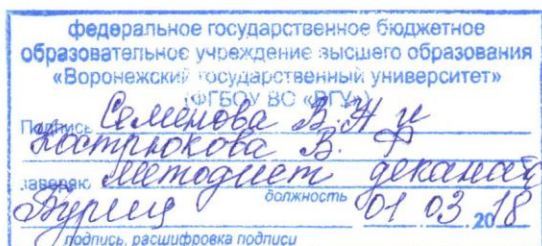 федеральное государственное бюджетное
образовательное учреждение высшего образования
«Воронежский государственный университет»
(ФГБОУ ВО «ВГУ»)
Подпись Семенова В.Ж и
Кострюкова В. Ф
заверяю методист деканат
должность
01 03 2018
подпись, расшифровка подписи